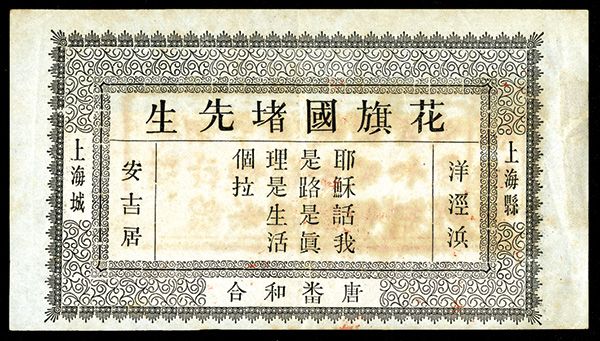 花旗國堵先生
上海縣
洋涇浜
耶穌話我
是路是眞
理是生活
個拉
安吉居
上海城
唐畨和合